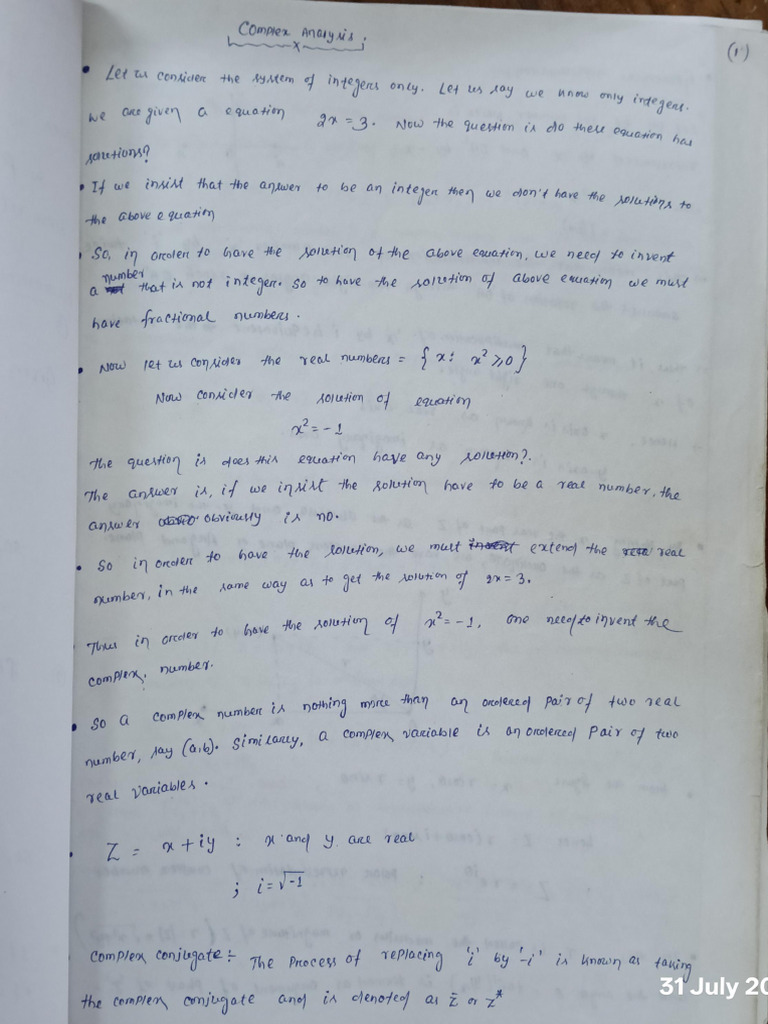 Complex Analysis.
x
(1)
• Let us consider the system of integers only. Let us say we know only integers.
we are given a equation 2x = 3. Now the question is do these equation has
solutions?
• If we insist that the answer to be an integer then we don't have the solutions to
the above equation
• So, in order to have the solution of the above equation, we need to invent
number
a that is not integer. So to have the solution of above equation we must
have fractional numbers.
• Now let us consider the real numbers = { x : x² ≥ 0 }
Now consider the solution of equation
x² = -1
The question is does this equation have any solution?.
The answer is, if we insist the solution have to be a real number, the
answer obviously is no.
• So in order to have the solution, we must extend the real
number, in the same way as to get the solution of 2x = 3.
• Thus in order to have the solution of x² = -1, one need to invent the
complex. number.
• So a complex number is nothing more than an ordered pair of two real
number, say (a,b). Similarly, a complex variable is an ordered pair of two
real variables.
• Z = x + iy : x and y are real
; i = √-1
Complex conjugate :- The process of replacing 'i' by '-i' is known as taking
the complex conjugate and is denoted as z̄ or z*
31 July 20